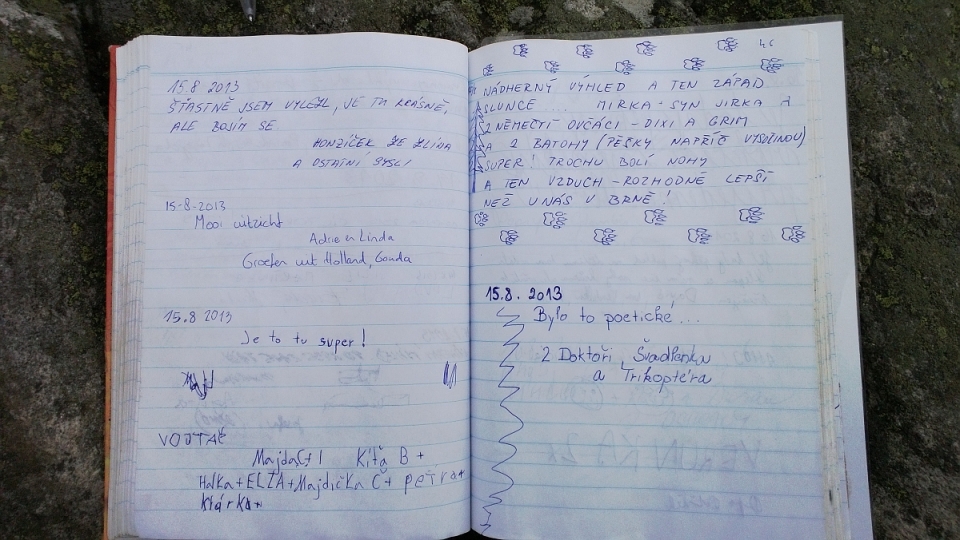 15.8 2013
ŠŤASTNĚ JSEM VYLEZL, JE TU KRÁSNĚ,
ALE BOJÍM SE
HONZÍČEK ZE ZLÍNA
A OSTATNÍ
15-8-2013
Mooi uitzicht
Adrie en Linda
Groeten uit Holland, Gouda
15.8 2013
Je to tu super!
VOJTA
Majda Kíťa B +
Halka+ELIA+Majdička C+ petra+
klárka+
46
NÁDHERNÝ VÝHLED A TEN ZÁPAD
SLUNCE ... MIRKA - SYN JIRKA
2 NĚMEČTÍ OVČÁCI - DIXI A GRIM
A 2 BATOHY (PĚŠKY NAPŘÍČ VYSOČINOU)
SUPER! TROCHU BOLÍ NOHY
A TEN VZDUCH - ROZHODNĚ LEPŠÍ
NEŽ U NÁS V BRNĚ!
15.8. 2013
Bylo to poetické...
2 Doktoři, Švadlenka
a Trikoptéra